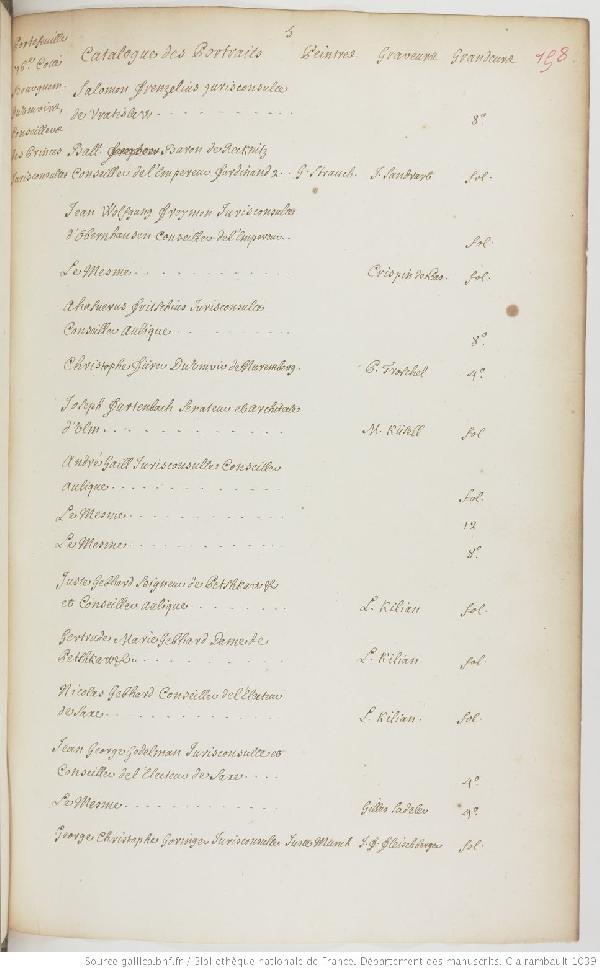 5
Portefeuille
Catalogue des Portraits Peintres Graveurs Grandeurs 198
Salomon Frenzelius jurisconsulte
de Vratislavu 8°
Conseillers
des Princes
Balt. Baron de Recknitz
Jurisconsultes Conseiller de l'Empereur Ferdinand 2. G. Strauch. J. Sandrart fol.
Jean Wolfgang Freymon Jurisconsultes
d'Obernhausen Conseiller de l'Empereur fol.
Le Mesme Crispin de Pas. fol.
Ahasuerus Fritschius Jurisconsulte
Conseiller Aulique 8°
Christophe Fürer Duumvir de Nuremberg. P. Troschel 4°
Joseph Furtenbach Senateur et Architecte
d'Ulm M. Küsell fol
André Gaill Jurisconsulte Conseiller
Aulique fol.
Le Mesme 12
Le Mesme 8°
Juste Gebhard Seigneur de
et Conseiller Aulique L. Kilian fol.
Gertrude Marie Gebhard Dame de
L. Kilian fol.
Nicolas Gebhard Conseiller de l'Electeur
de Saxe L. Kilian. fol.
Jean George Godelman Jurisconsulte et
Conseiller de l'Electeur de Saxe 4°
Le Mesme Gilles Sadeler 4°
George Christophe Goringer Jurisconsulte Juste Munch J. F. Fleischberger fol.
Source gallica.bnf.fr / Bibliothèque nationale de France. Département des manuscrits. Clairambault 1039